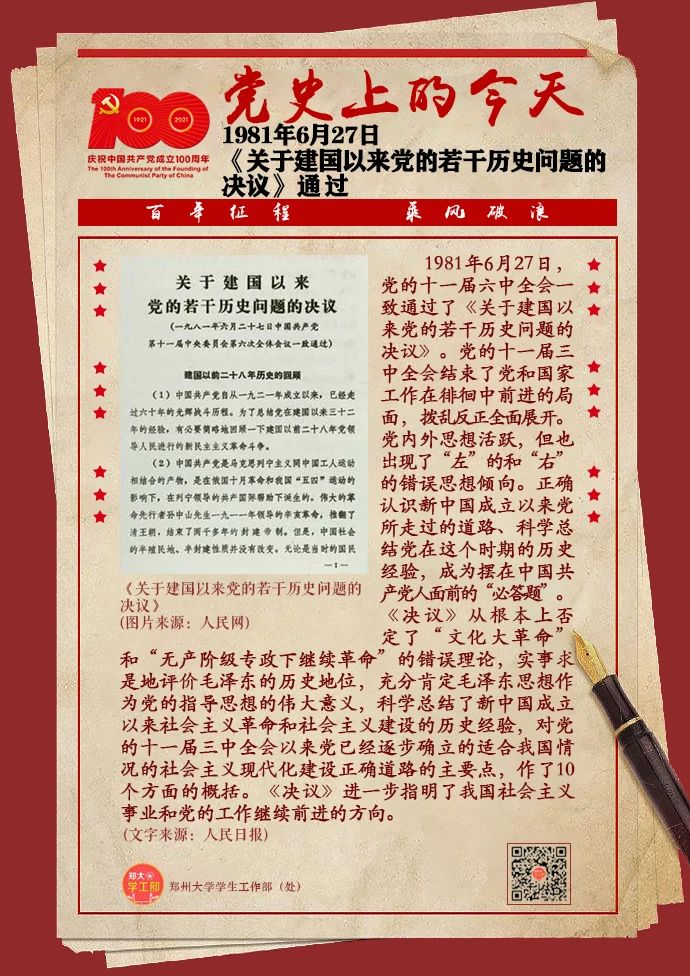 党史上的今天
1921
2021
庆祝中国共产党成立100周年
The 100th Anniversary of the Founding of
The Communist Party of China
1981年6月27日
《关于建国以来党的若干历史问题的
决议》通过
百年征程 乘风破浪
关于建国以来
党的若干历史问题的决议
(一九八一年六月二十七日中国共产党
第十一届中央委员会第六次全体会议一致通过)
建国以前二十八年历史的回顾
(1)中国共产党自从一九二一年成立以来,已经走
过六十年的光辉战斗历程。为了总结党在建国以来三十二
年的经验,有必要简略地回顾一下建国以前二十八年党领
导人民进行的新民主主义革命斗争。
(2)中国共产党是马克思列宁主义同中国工人运动
相结合的产物,是在俄国十月革命和我国“五四”运动的
影响下,在列宁领导的共产国际帮助下诞生的。伟大的革
命先行者孙中山先生一九一一年领导的辛亥革命,推翻了
清王朝,结束了两千多年的封建帝制。但是,中国社会
的半殖民地、半封建性质并没有改变。无论是当时的国民
—1—
《关于建国以来党的若干历史问题的
决议》
(图片来源:人民网)
1981年6月27日,
党的十一届六中全会一
致通过了《关于建国以
来党的若干历史问题的
决议》。党的十一届三
中全会结束了党和国家
工作在徘徊中前进的局
面,拨乱反正全面展开。
党内外思想活跃,但也
出现了“左”的和“右”
的错误思想倾向。正确
认识新中国成立以来党
所走过的道路、科学总
结党在这个时期的历史
经验,成为摆在中国共
产党人面前的“必答题”。
《决议》从根本上否
定了“文化大革命”
和“无产阶级专政下继续革命”的错误理论,实事求
是地评价毛泽东的历史地位,充分肯定毛泽东思想作
为党的指导思想的伟大意义,科学总结了新中国成立
以来社会主义革命和社会主义建设的历史经验,对党
的十一届三中全会以来党已经逐步确立的适合我国情
况的社会主义现代化建设正确道路的主要点,作了10
个方面的概括。《决议》进一步指明了我国社会主义
事业和党的工作继续前进的方向。
(文字来源:人民日报)
郑大
学工部
郑州大学学生工作部(处)